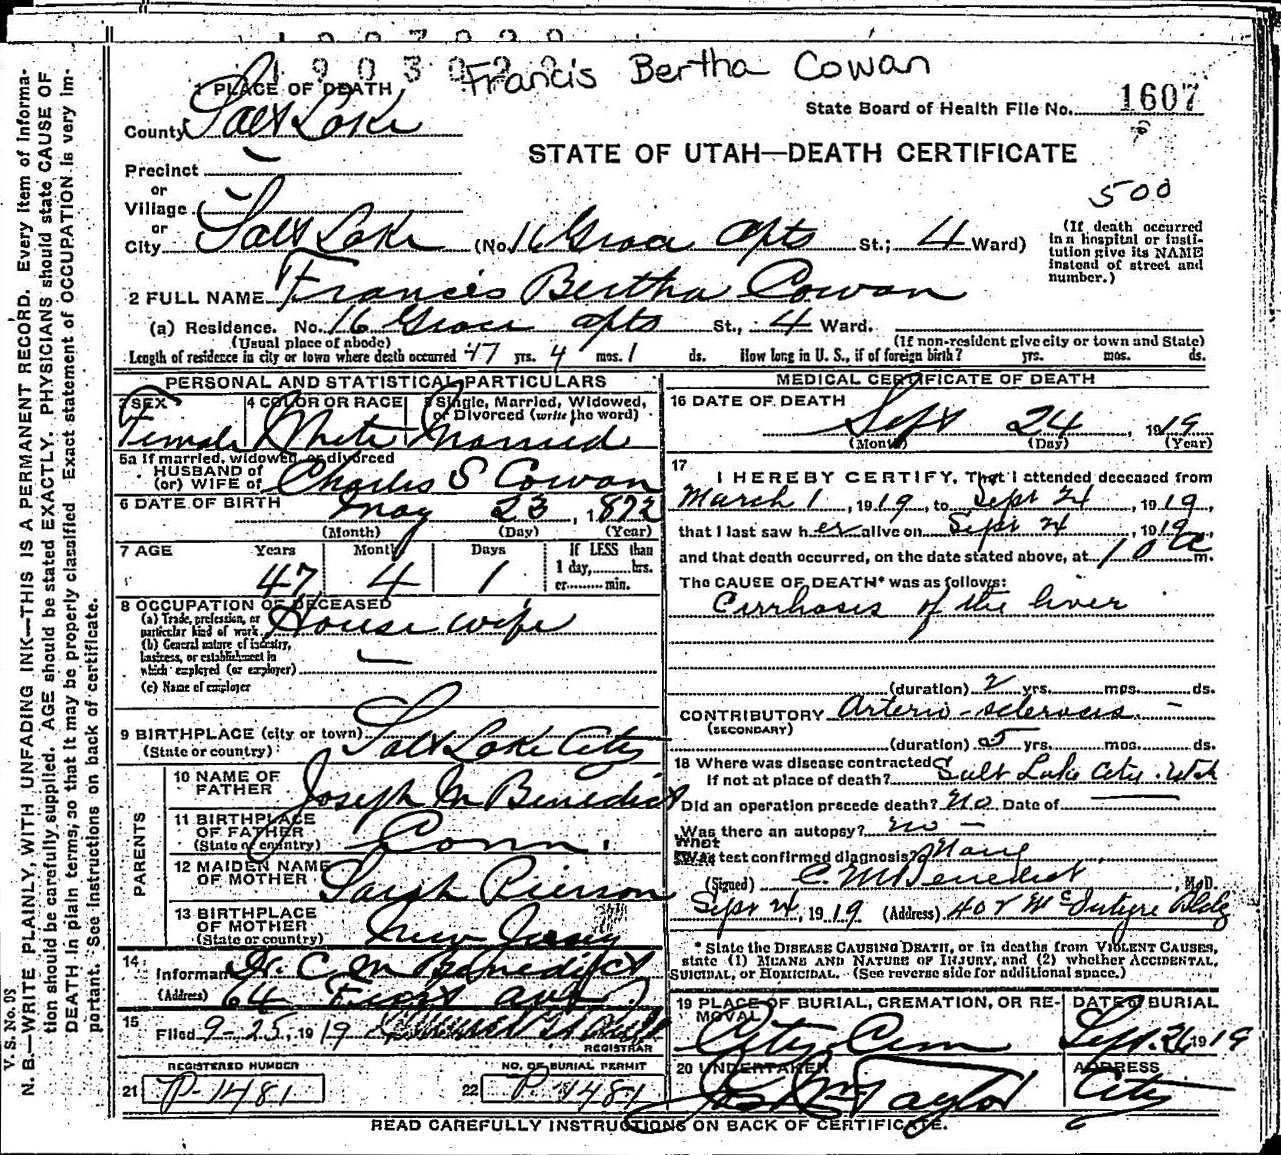 1903020
Francis Bertha Cowan
1 PLACE OF DEATH
State Board of Health File No. 1607
County Salt Lake
STATE OF UTAH—DEATH CERTIFICATE
Precinct —
or
Village —
500
or
City Salt Lake (No. 16 Grace apts St.; 4 Ward)
(If death occurred in a hospital or institution give its NAME instead of street and number.)
2 FULL NAME Francis Bertha Cowan
(a) Residence. No. 16 Grace apts St., 4 Ward.
(Usual place of abode) (If non-resident give city or town and State)
Length of residence in city or town where death occurred 47 yrs. 4 mos. 1 ds. How long in U. S., if of foreign birth? yrs. mos. ds.
PERSONAL AND STATISTICAL PARTICULARS
3 SEX Female
4 COLOR OR RACE White
5 Single, Married, Widowed, or Divorced (write the word) Married
5a If married, widowed, or divorced
HUSBAND of
(or) WIFE of Charles S Cowan
6 DATE OF BIRTH May 23, 1872
(Month) (Day) (Year)
7 AGE Years Months Days If LESS than
47 4 1 1 day,........hrs.
or........min.
8 OCCUPATION OF DECEASED
(a) Trade, profession, or particular kind of work House wife
(b) General nature of industry, business, or establishment in which employed (or employer) —
(c) Name of employer
9 BIRTHPLACE (city or town) Salt Lake City
(State or country)
PARENTS
10 NAME OF FATHER Joseph M Benedict
11 BIRTHPLACE OF FATHER Conn.
(State or country)
12 MAIDEN NAME OF MOTHER Sarah Pierson
13 BIRTHPLACE OF MOTHER New Jersey
(State or country)
14 Informant Dr. C. M Benedict
(Address) 64 First ave
15 Filed 9-25, 1919
REGISTRAR
REGISTERED NUMBER
21 P-1481
NO. OF BURIAL PERMIT
22 P. 1481
MEDICAL CERTIFICATE OF DEATH
16 DATE OF DEATH
Sept 24, 1919
(Month) (Day) (Year)
17 I HEREBY CERTIFY, That I attended deceased from
March 1, 1919, to Sept 24, 1919,
that I last saw her alive on Sept 24, 1919,
and that death occurred, on the date stated above, at 10 a m.
The CAUSE OF DEATH* was as follows:
Cirrhosis of the liver
(duration) 2 yrs. mos. ds.
CONTRIBUTORY Arterio-sclerosis —
(SECONDARY)
(duration) 5 yrs. mos. ds.
18 Where was disease contracted
If not at place of death? Salt Lake City. Utah
Did an operation precede death? No Date of —
Was there an autopsy? no —
What test confirmed diagnosis? None
(Signed) C. M Benedict, M.D.
Sept 24, 1919 (Address) 408 McIntyre Bldg
* State the DISEASE CAUSING DEATH, or in deaths from VIOLENT CAUSES,
state (1) MEANS AND NATURE OF INJURY, and (2) whether ACCIDENTAL,
SUICIDAL, or HOMICIDAL. (See reverse side for additional space.)
19 PLACE OF BURIAL, CREMATION, OR REMOVAL City Cem
DATE OF BURIAL Sept. 26 1919
20 UNDERTAKER Taylor
ADDRESS City
READ CAREFULLY INSTRUCTIONS ON BACK OF CERTIFICATE.
V. S. No. 98
N. B.—WRITE PLAINLY, WITH UNFADING INK—THIS IS A PERMANENT RECORD. Every item of informa-
tion should be carefully supplied. AGE should be stated EXACTLY. PHYSICIANS should state CAUSE OF
DEATH in plain terms, so that it may be properly classified. Exact statement of OCCUPATION is very im-
portant. See instructions on back of certificate.